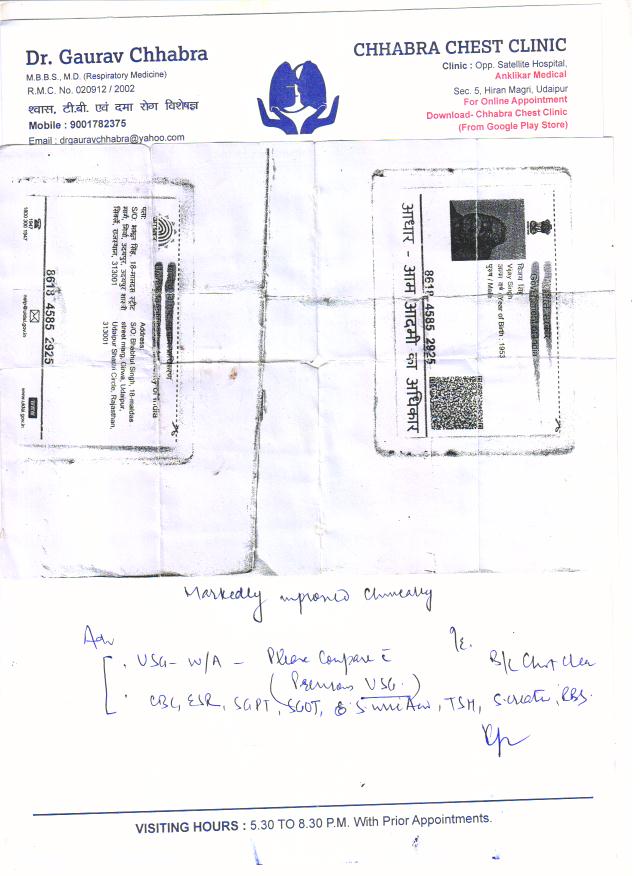 Dr. Gaurav Chhabra
M.B.B.S., M.D. (Respiratory Medicine)
R.M.C. No. 020912 / 2002
श्वास, टी.बी. एवं दमा रोग विशेषज्ञ
Mobile : 9001782375
Email : drgauravchhabra@yahoo.com
CHHABRA CHEST CLINIC
Clinic : Opp. Satellite Hospital,
Anklikar Medical
Sec. 5, Hiran Magri, Udaipur
For Online Appointment
Download- Chhabra Chest Clinic
(From Google Play Store)
Address:
S/O: Bhabhul Singh, 18-maldas
street marg, Girwa, Udaipur,
Udaipur Shastri Circle, Rajasthan,
313001
8618 4585 2925
1947
1800 300 1947
help@uidai.gov.in
www.uidai.gov.in
Vijay Singh
Year of Birth : 1953
पुरुष / Male
8618 4585 2925
आधार - आम आदमी का अधिकार
Markedly improved Clinically
Adv
USG - W/A - Please Compare c̄
(Previous USG.)
CBC, ESR, SGPT, SGOT, S. uric Acid, TSH, S. creat, RBS.
O/E.
B/L Chest clear
VISITING HOURS : 5.30 TO 8.30 P.M. With Prior Appointments.